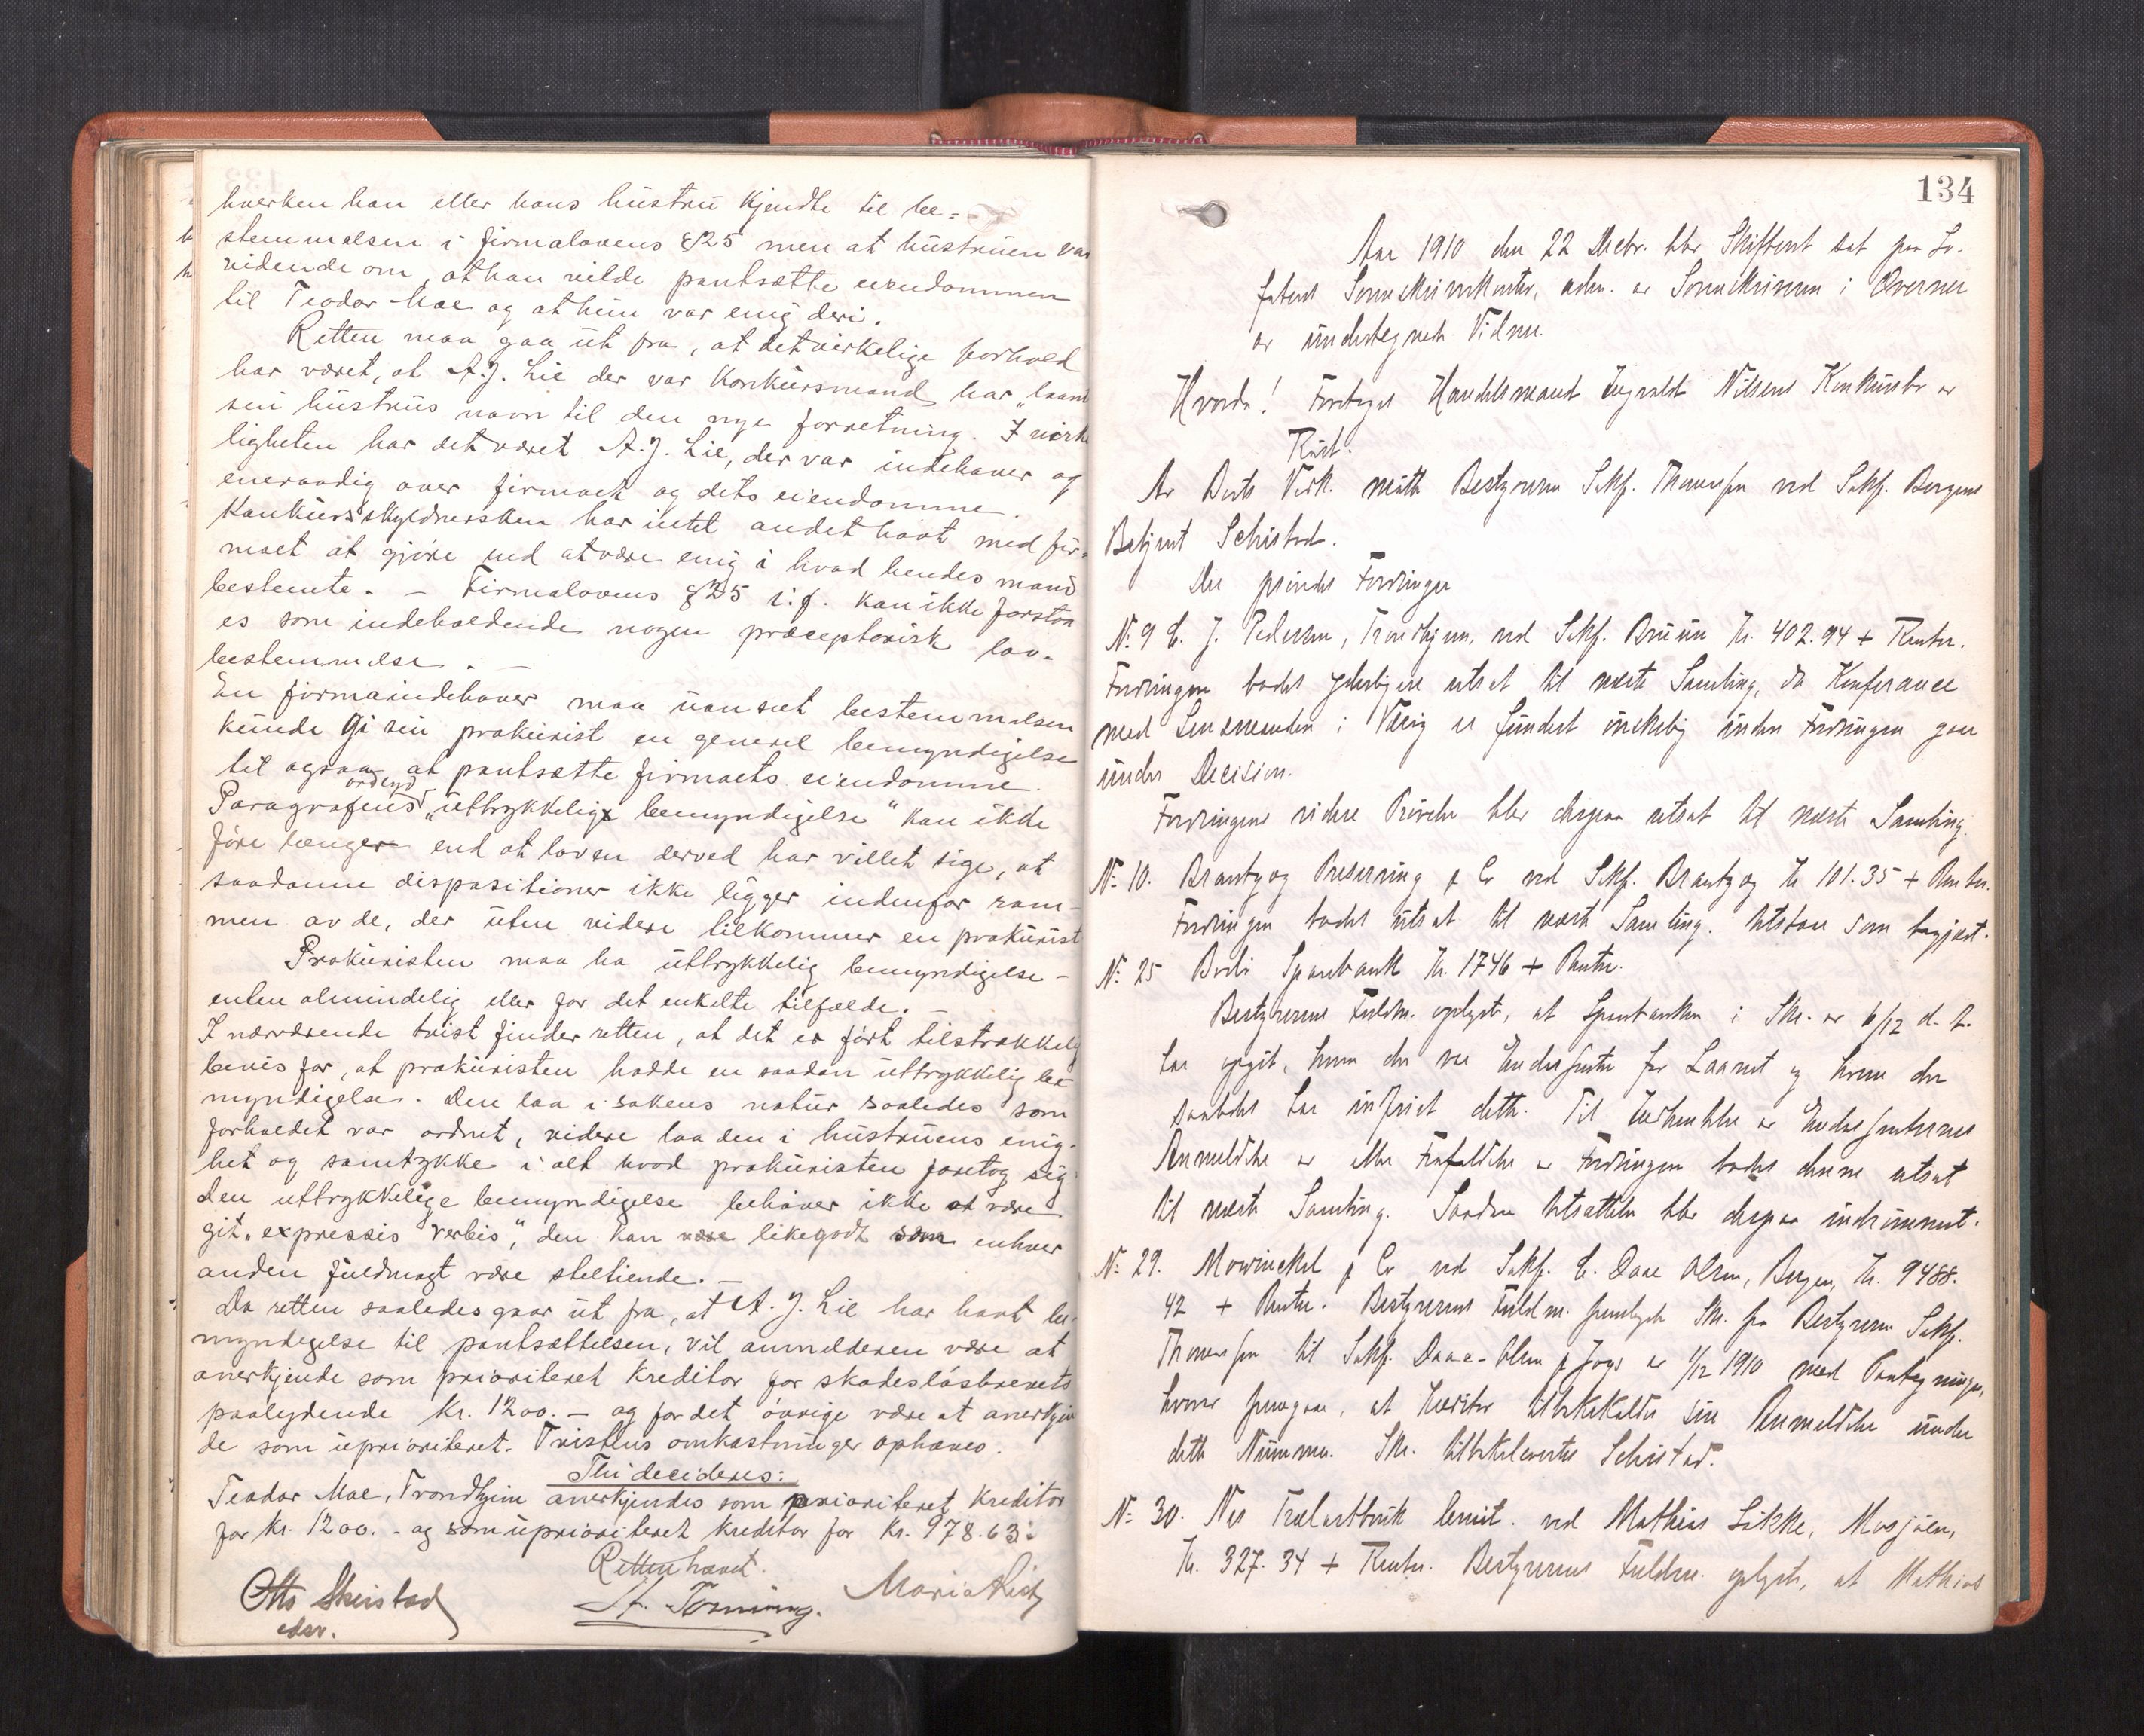 hverken han eller hans hustru kjendte til be=
stemmelsen i firmalovens §25 men at hustruen var
vidende om, at han vilde pantsætte eiendommen
til Teodor Moe og at hun var enig deri.
Retten maa gaa ut fra, at det virkelige forhold
har været, at A.J. Lie der var konkursmand har "laant
sin hustrus navn til den nye forretning. I virke
ligheten har det været A.J. Lie, der var indehaver og
eneraadig over firmaet og dets eiendomme.
Konkursskyldnersken har intet andet havt med fir-
maet at gjøre end at være enig i hvad hendes mand
bestemte. - Firmalovens §25 i.f. kan ikke forstaa
es som indeholdende nogen præceptorisk lov-
bestemmelse. -
En firmaindehaver maa uanset bestemmelsen
kunde gi sin prokurist en generel bemyndigelse
til ogsaa at pantsætte firmaets eiendomme.
Paragrafens ordlyd "uttrykkelig bemyndigelse" kan ikke
føre længer end at loven derved har villet sige, at
saadanne dispositioner ikke ligger indenfor ram-
men av de, der uten videre tilkommer en prokurist
Prokuristen maa ha uttrykkelig bemyndigelse -
enten almindelig eller for det enkelte tilfælde. -
I nærværende tvist finder retten, at det er ført tilstrækkelig
bevis for, at prokuristen hadde en saadan uttrykkelig be-
myndigelse. Den laa i sakens natur saaledes som
forholdet var ordnet, videre laa den i hustruens enig-
het og samtykke i alt hvad prokuristen foretog sig
den uttrykkelige bemyndigelse behøver ikke at være
git "expressis verbis", den kan likegodt som enhver
anden fuldmagt være stiltiende. -
Da retten saaledes gaar ut fra, at A.J. Lie har havt be-
myndigelse til pantsættelsen, vil anmelderen være at
anerkjende som prioriteret kreditor for skadesløsbrevets
paalydende kr. 1200. - og for det øvrige være at anerkjen
de som uprioriteret. Tvistens omkastninger ophæves.
Thi decideres:
Teodor Moe, Trondhjem anerkjendes som prioriteret kreditor
for kr. 1200. - og som uprioriteret kreditor for kr. 978.63.
Retten hævet.
Otto Skeistad
edsv.
134
Aar 1910 den 22 Decbr. blev Skifteret sat paa
Sorenskriverkontor, adm. av Sorenskriveren i Overvær
av undertegnede Vidner.
Hvorda! Foretages Handelsmand Ingvald Nilsens Konkursbo
Av Boets Vedk. møtte Bestyreren Sakf. Thomessen ved Sakf. Borgens
Betjent Schistad.
De prøvede Fordringer
No 9 C. J. Pedersen, Trondhjem, ved Sakf. Bruun Kr. 402.94 + Renter.
Fordringen bades yderligere utsat til næste Samling, da Konferance
med Lensmanden i er fundet ønskelig inden Fordringen gaar
under Decision.
Fordringens videre Prøvelse blev derpaa utsat til næste Samling.
No 10. Brantzog Preserving & Co ved Sakf. Brantzog Kr 101.35 + Renter.
Fordringen bades utsat til næste Samling. Utstaar som begjært.
No 25 Bodø Sparebank Kr. 1746 + Renter.
Bestyrerens Fuldm. oplyste, at Sparebanken i Skr. av 6/12 d. A.
har opgit, hvem der var Endossenter for Laanet og hvem der
saaledes har indfriet dette. Til av Endossenternes
Anmeldelse av eller Frafaldelse av Fordringen bades denne utsat
til næste Samling. Saadan Utsættelse blev derpaa indrømmet.
No 29. Mowinckel & Co ved Sakf. C. Daae Olsen, Bergen, Kr. 9488.
42 + Renter. Bestyrerens Fuldm. fremlagde Skr. fra Bestyreren Sakf.
Thomessen til Sakf. Daae-Olsen av 1/12 1910 med Paategninger,
hvorav fremgaar, at Kreditor tilbakekalder sin Anmeldelse under
dette Nummer. Skr. tilbakeleveres Schistad.
No 30. Nes Trælastbruk lemit. ved MathiasLøkke, Mosjøen,
Kr. 327.34 + Renter. Bestyrerens Fuldm. oplyste, at Mathias